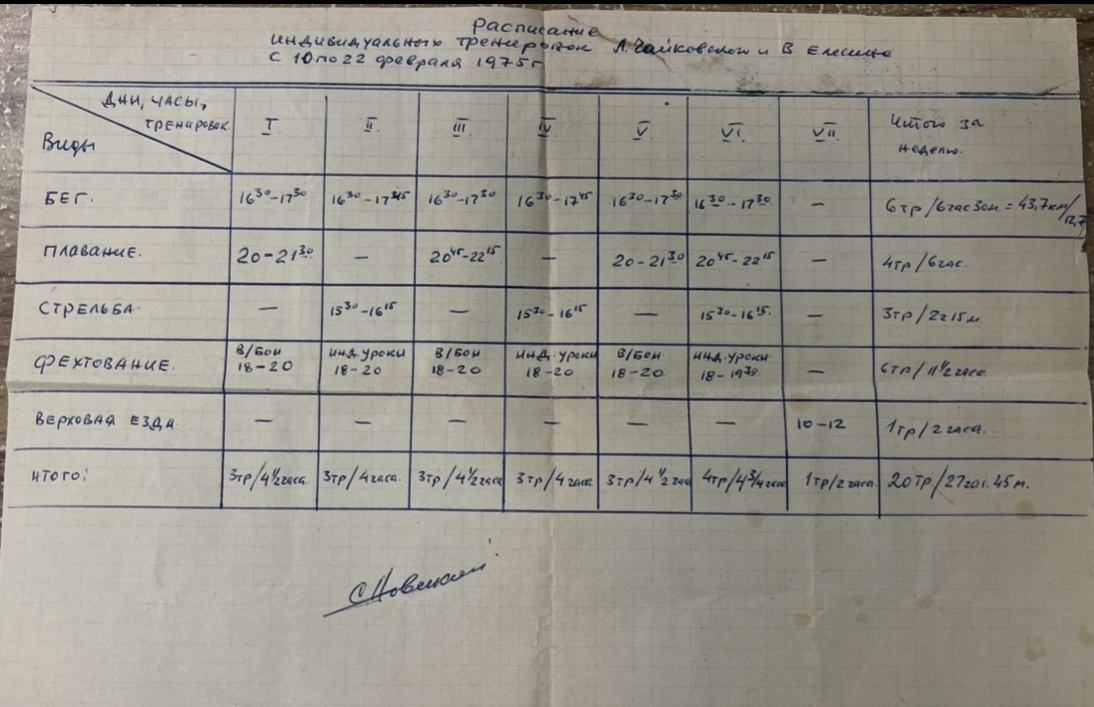 Расписание
индивидуальных тренировок Л. Чайковского и В Елесина
С 10 по 22 февраля 1975г.
Дни, часы, I II III IV V VI VII Итого за
тренировок. неделю.
Виды
БЕГ. 16³⁰-17³⁰ 16³⁰-17⁴⁵ 16³⁰-17³⁰ 16³⁰-17⁴⁵ 16³⁰-17³⁰ 16³⁰-17³⁰ — 6тр/6час30м. = 43,7км/
12,7
Плавание. 20-21³⁰ — 20⁴⁵-22¹⁵ — 20-21³⁰ 20⁴⁵-22¹⁵ — 4тр/6час.
Стрельба — 15³⁰-16¹⁵ — 15³⁰-16¹⁵ — 15³⁰-16¹⁵ — 3тр/2ч15м.
Фехтование. В/Бои инд. уроки В/Бои инд. уроки В/Бои инд. уроки — 6тр/11½часа
18-20 18-20 18-20 18-20 18-20 18-19³⁰
Верховая езда — — — — — — 10-12 1тр/2часа.
Итого: 3тр/4½часа 3тр/4часа. 3тр/4½часа 3тр/4часа 3тр/4½часа 4тр/4¾часа 1тр/2часа. 20тр/27час.45м.